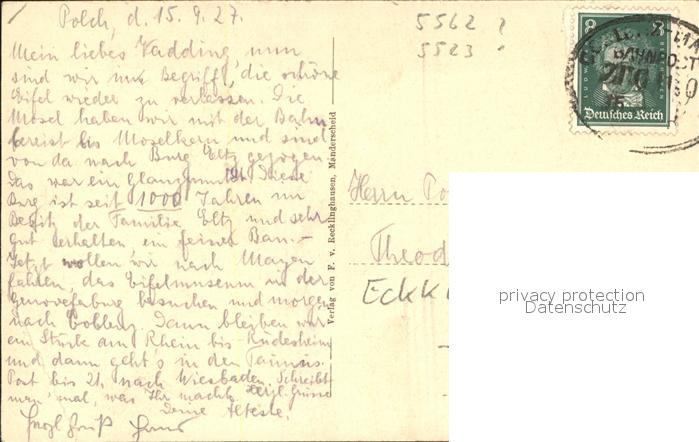 Polch, d. 15.9.27.
Mein liebes Vadding nun
sind wir im Begriff, die schöne
Eifel wieder zu verlassen. Die
Mosel haben wir mit der Bahn
bereist bis Moselkern und sind
von da nach Burg Eltz gezogen.
Das war ein Glanzpunkt. Diese
Burg ist seit 1000 Jahren im
Besitz der Familie Eltz und sehr
gut erhalten ein feiner Bau.-
Jetzt wollen wir nach Mayen
fahren, das Eifelmuseum in der
Genovefaburg besuchen und morgen
nach Coblenz. Dann bleiben wir
ein Stück am Rhein bis Rüdesheim
und dann geht's in den Taunus.
Post bis 21. nach Wiesbaden. Schreibt
man 'mal, was Ihr macht. Herzl. Grüsse
Deine Älteste.
Herzl. Gruß Hans
Verlag von F. v. Recklinghausen, Manderscheid
5562 ?
5523
8 8
BAHNPOST
ZUG
Deutsches Reich
Herrn
Theod
Eckk
privacy protection
Datenschutz